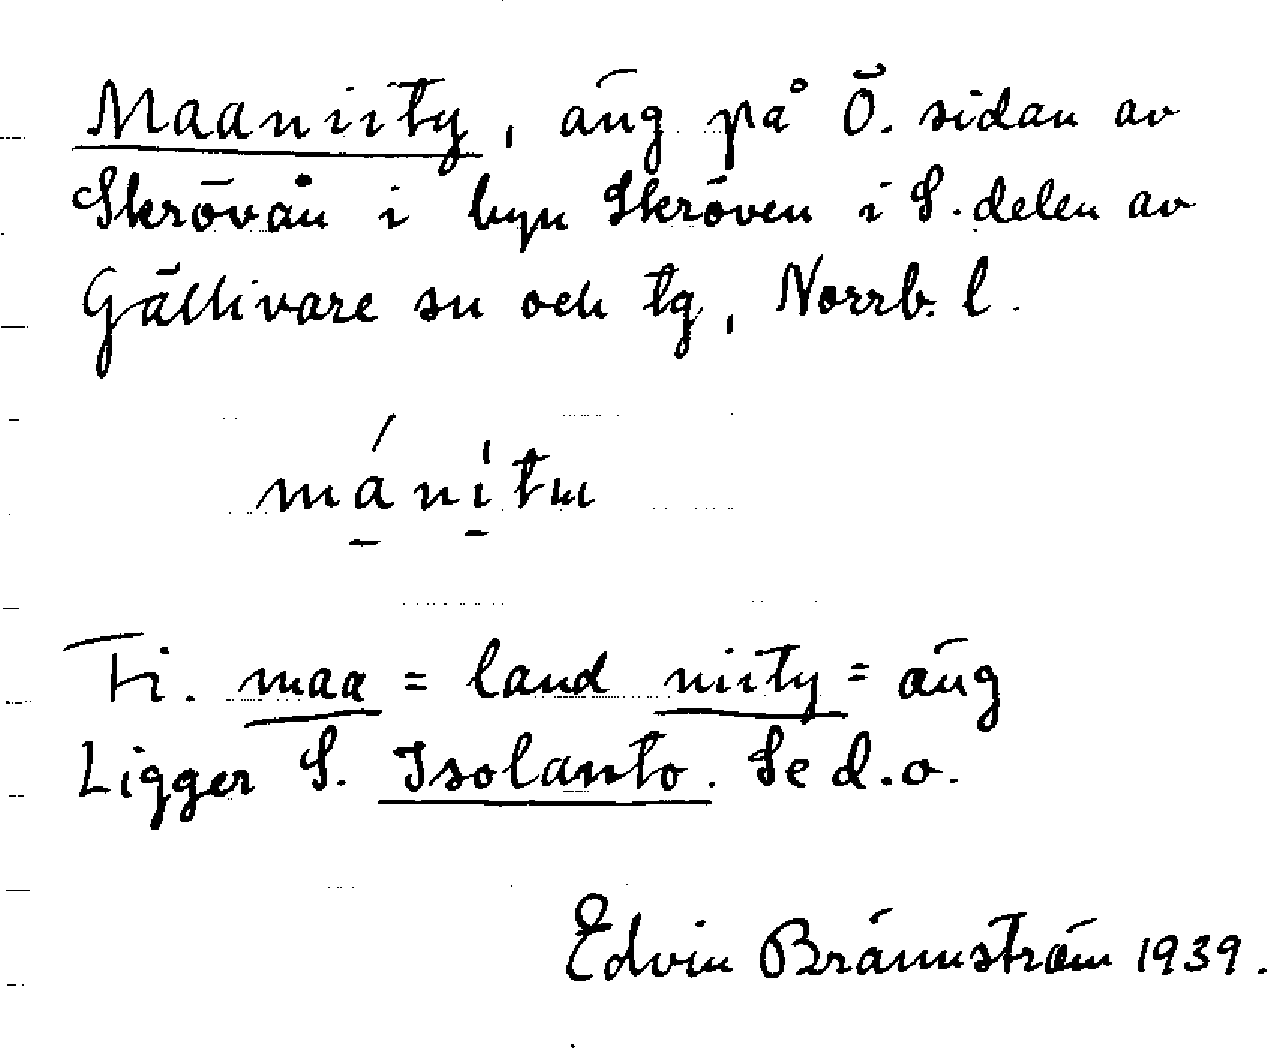 Maaniity, äng på Ö. sidan av
Skrövån i byn Skröven i S. delen av
Gällivare sn och tg, Norrb. l.
má̱ní̱tu
Fi. maa = land niity = äng
Ligger S. Isolanto. Se d.o.
Edvin Brännström 1939.